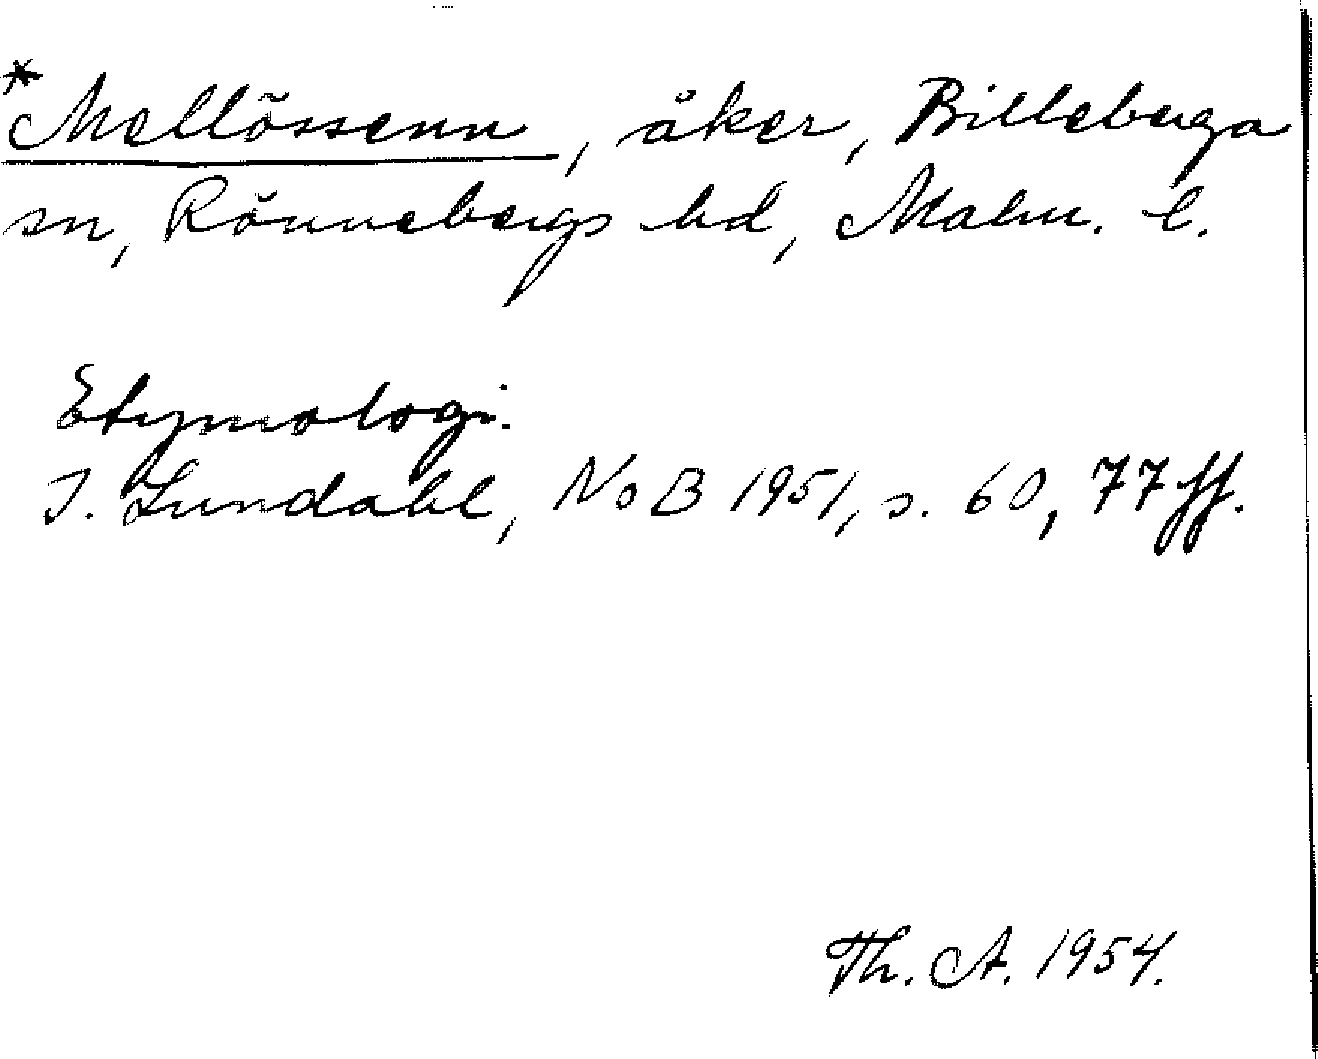 *Mellössenn, åker, Billeberga
sn, Rönnebergs hd, Malm. l.
Etymologi.
I. Lundahl, NoB 1951, s. 60, 77 ff.
Th. A. 1954.